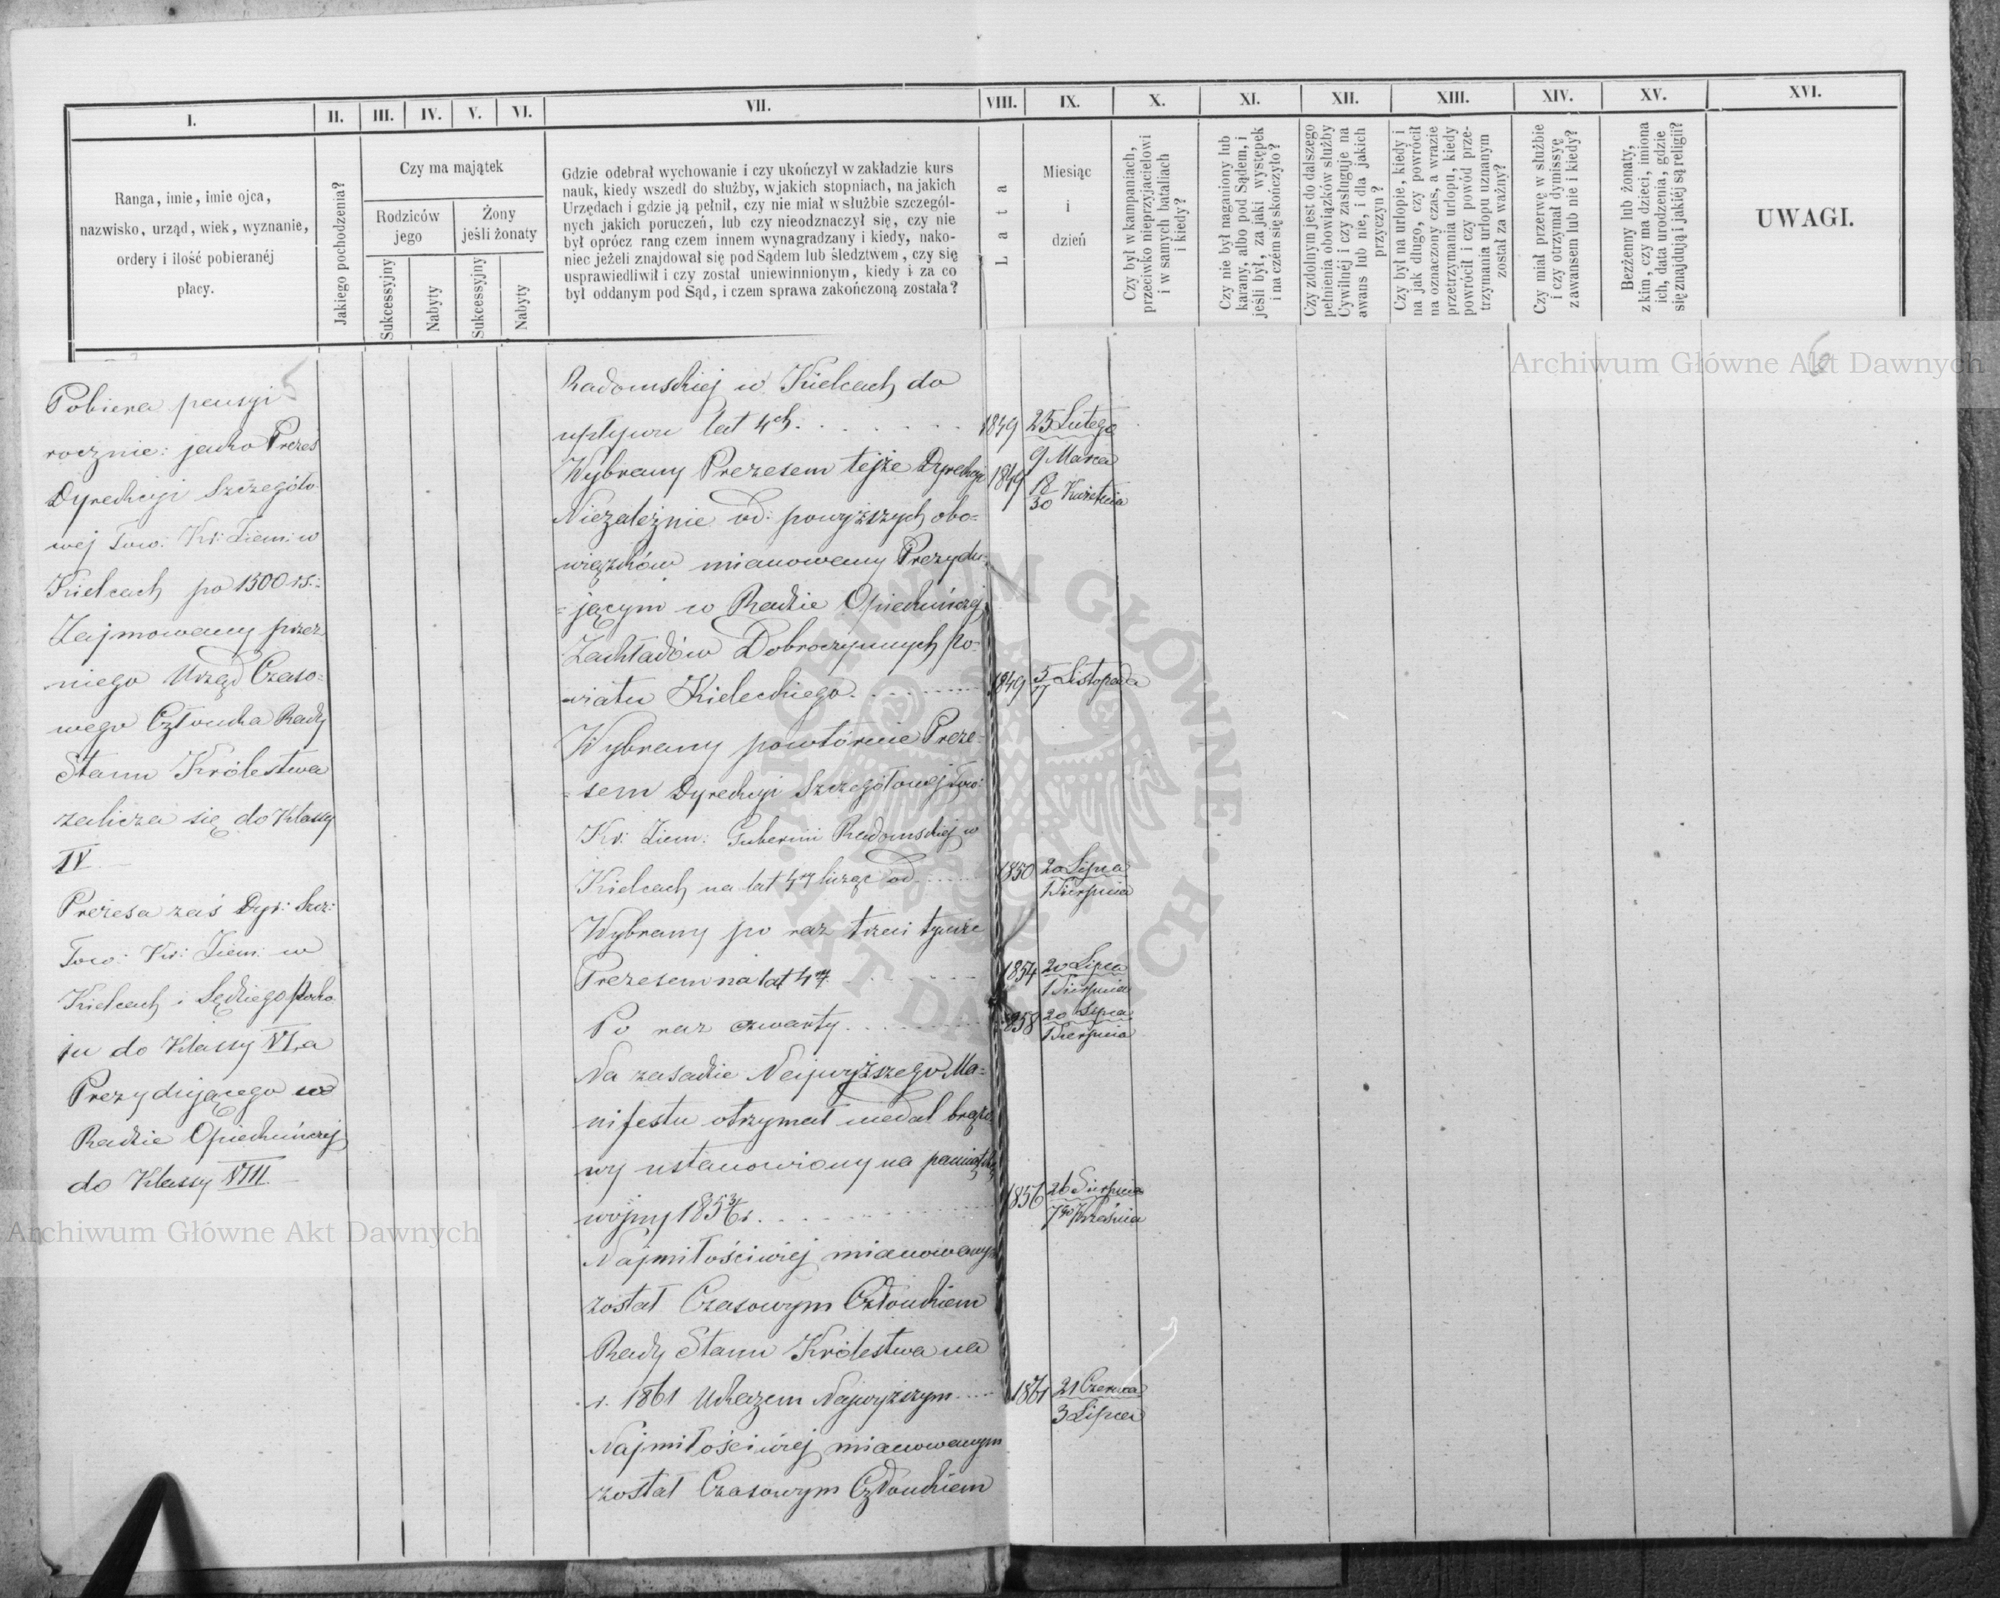 I.
II.
III.
IV.
V.
VI.
VII.
VIII.
IX.
X.
XI.
XII.
XIII.
XIV.
XV.
XVI.
Ranga, imie, imie ojca,
nazwisko, urząd, wiek, wyznanie,
ordery i ilość pobieranéj
płacy.
Jakiego pochodzenia?
Czy ma majątek
Rodziców
jego
Żony
jeśli żonaty
Sukcessyjny
Nabyty
Sukcessyjny
Nabyty
Gdzie odebrał wychowanie i czy ukończył w zakładzie kurs
nauk, kiedy wszedł do służby, w jakich stopniach, na jakich
Urzędach i gdzie ją pełnił, czy nie miał w służbie szczegól-
nych jakich poruczeń, lub czy nieodznaczył się, czy nie
był oprócz rang czem innem wynagradzany i kiedy, nako-
niec jeżeli znajdował się pod Sądem lub śledztwem, czy się
usprawiedliwił i czy został uniewinnionym, kiedy i za co
był oddanym pod Sąd, i czem sprawa zakończoną została?
Lata
Miesiąc
i
dzień
Czy był w kampaniach,
przeciwko nieprzyjacielowi
i w samych bataliach
i kiedy?
Czy nie był naganiony lub
karany, albo pod Sądem, i
jeśli był, za jaki występek
i na czém się skończyło?
Czy zdolnym jest do dalszego
pełnienia obowiązków służby
Cywilnéj i czy zasługuje na
awans lub nie, i dla jakich
przyczyn?
Czy był na urlopie, kiedy i
na jak długo, czy powrócił
na oznaczony czas, a wrazie
przetrzymania urlopu, kiedy
powrócił i czy powód prze-
trzymania urlopu uznanym
został za ważny?
Czy miał przerwę w służbie
i czy otrzymał dymissyę
z awansem lub nie i kiedy?
Bezżenny lub żonaty,
z kim, czy ma dzieci, imiona
ich, data urodzenia, gdzie
się znajdują i jakiéj są religii?
UWAGI.
5
6
Pobiera pensyi
rocznie: jako Prezes
Dyrekcyi Szczegóło-
wej Tow: Kr: Ziem: w
Kielcach po 1500 rs.:
Zajmowany przez
niego Urząd Czaso-
wego Członka Rady
Stanu Królestwa
zalicza się do Klassy
IV.
Prezesa zaś Dyr: Szcz:
Tow: Kr: Ziem: w
Kielcach i Sędziego Poko
ju do Klassy VI, a
Prezydującego w
Radzie Opiekuńczej
do Klassy VIII.
Radomskiej w Kielcach do
upływu lat 4ch. 1849 25 Lutego
9 Marca
Wybrany Prezesem tejże Dyrekcyi 1849 18/30 Kwietnia
Niezależnie od powyższych obo-
wiązków mianowany Prezydu-
jącym w Radzie Opiekuńczej
Zakładów Dobroczynnych Po-
wiatu Kieleckiego. 1849 5/17 Listopada
Wybrany powtórnie Preze-
sem Dyrekcyi Szczegółowej Tow:
Kr: Ziem: Gubernii Radomskiej w
Kielcach na lat 4ry licząc od 1850 20 Lipca
1 Sierpnia
Wybrany po raz trzeci tymże
Prezesem na lat 4ry 1854 20 Lipca
1 Sierpnia
Po raz czwarty 1858 20 Lipca
1 Sierpnia
Na zasadzie Najwyższego Ma-
nifestu otrzymał medal brązo
wy ustanowiony na pamiątkę
wojny 1853/6 r. 1856 26 Sierpnia
7go Września
Najmiłościwiej mianowanym
został Czasowym Członkiem
Rady Stanu Królestwa na
r. 1861 Ukazem Najwyższym 1861 21 Czerwca
3 Lipca
Najmiłościwiej mianowanym
został Czasowym Członkiem
Archiwum Główne Akt Dawnych
Archiwum Główne Akt Dawnych
ARCHIWUM GŁÓWNE AKT DAWNYCH